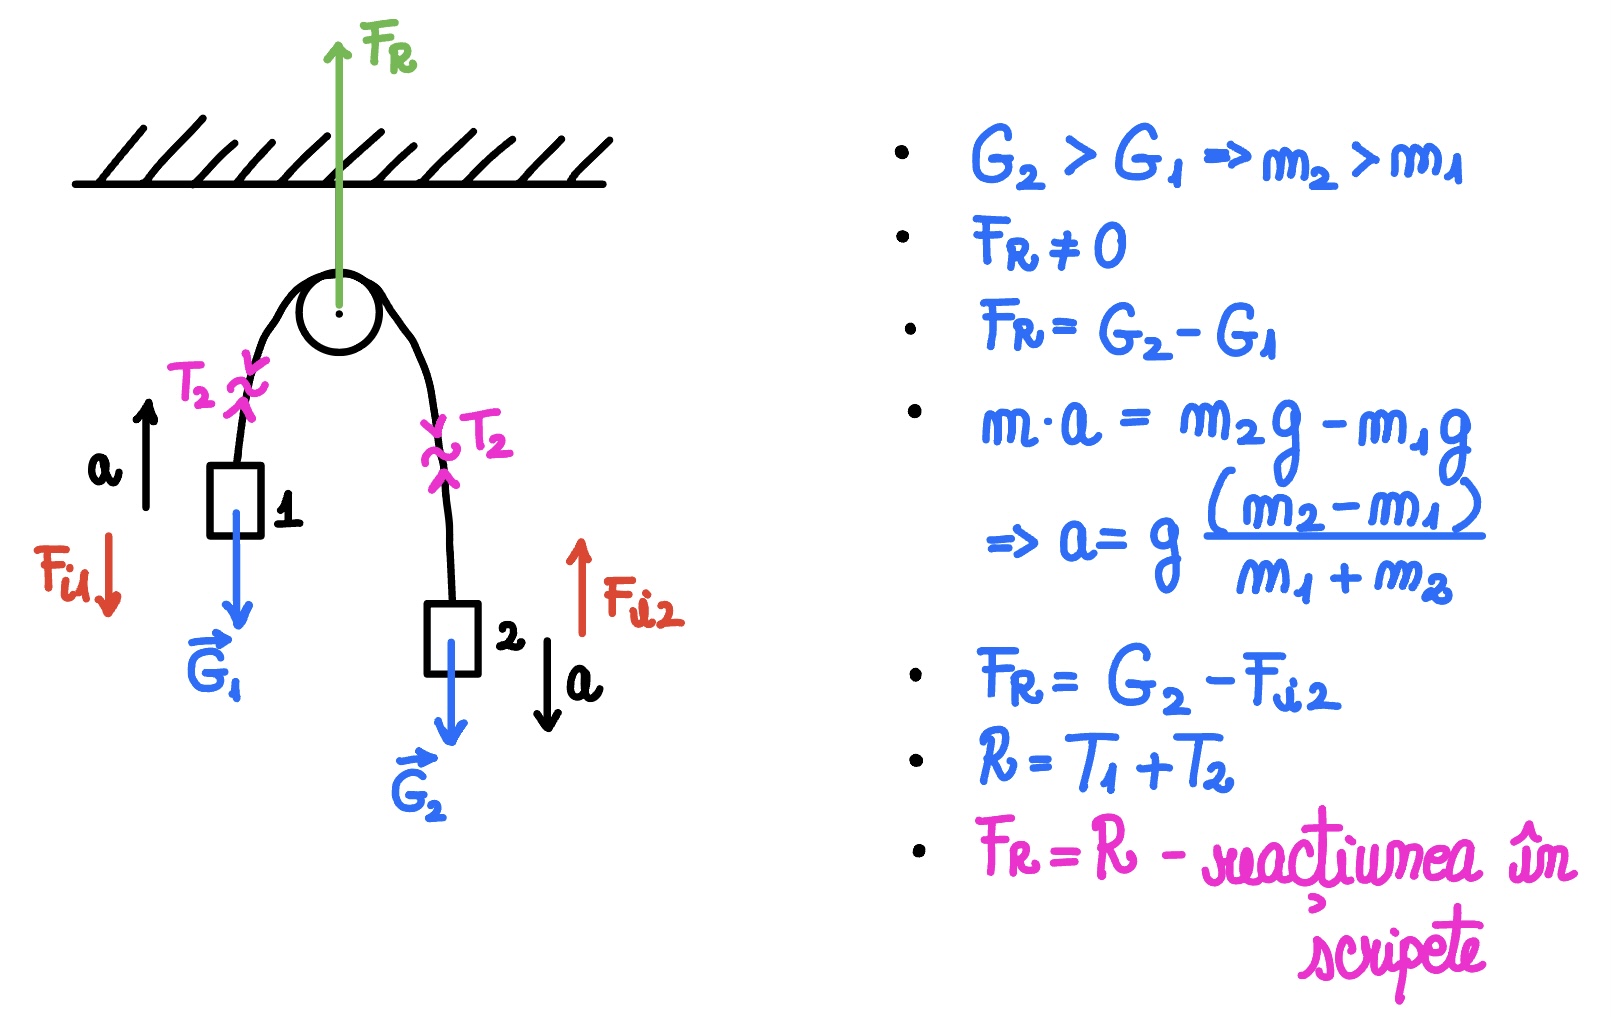 F_R
T_2
T_2
a
1
F_i1
G⃗_1
F_i2
2
a
G⃗_2
• G_2 > G_1 => m_2 > m_1
• F_R ≠ 0
• F_R = G_2 - G_1
• m·a = m_2 g - m_1 g
=> a = g (m_2 - m_1) / m_1 + m_2
• F_R = G_2 - F_i2
• R = T_1 + T_2
• F_R = R - reacțiunea în
scripete